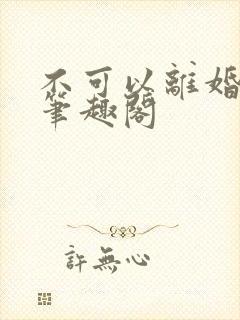 不可以離婚
筆趣閣
許無心